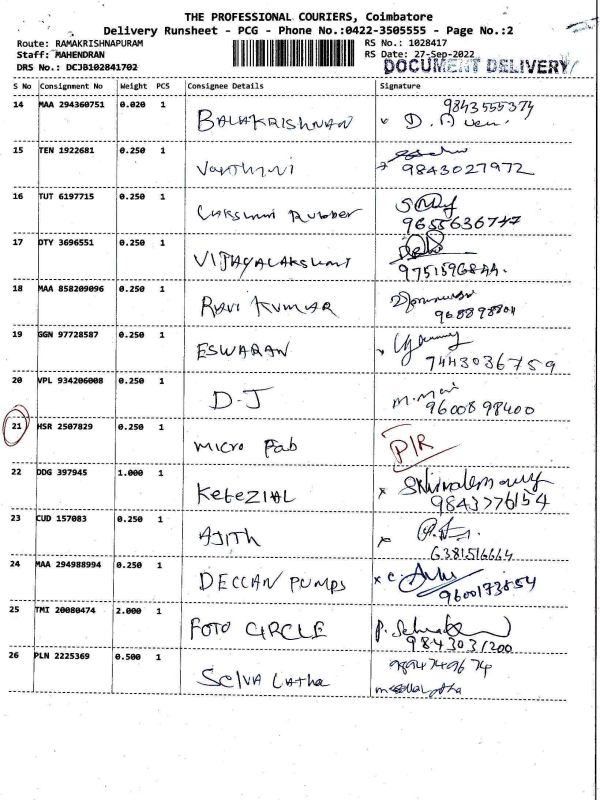 THE PROFESSIONAL COURIERS, Coimbatore
Delivery Runsheet - PCG - Phone No.:0422-3505555 - Page No.:2
Route: RAMAKRISHNAPURAM RS No.: 1028417
Staff: MAHENDRAN RS Date: 27-Sep-2022
DRS No.: DCJB102841702 DOCUMENT DELIVERY
S No Consignment No Weight PCS Consignee Details Signature
14 MAA 294360751 0.020 1 BALAKRISHNAN 9843555374
15 TEN 1922681 0.250 1 9843027972
16 TUT 6197715 0.250 1 Lakshmi Rubber 9655636747
17 DTY 3696551 0.250 1 VIJAYALAKSHMI 9751596844.
18 MAA 858209096 0.250 1 RAVI KUMAR
19 GGN 97728587 0.250 1 ESWARAN 7443036759
20 VPL 934206008 0.250 1 D-J 9600898400
21 HSR 2507829 0.250 1 Micro Fab P/R
22 DDG 397945 1.000 1 9843776154
23 CUD 157083 0.250 1 AJITH 6381516664
24 MAA 294988994 0.250 1 DECCAN PUMPS 9600173854
25 TMI 20080474 2.000 1 FOTO CIRCLE 9843031200
26 PLN 2225369 0.500 1 Selva Latha 9894749674